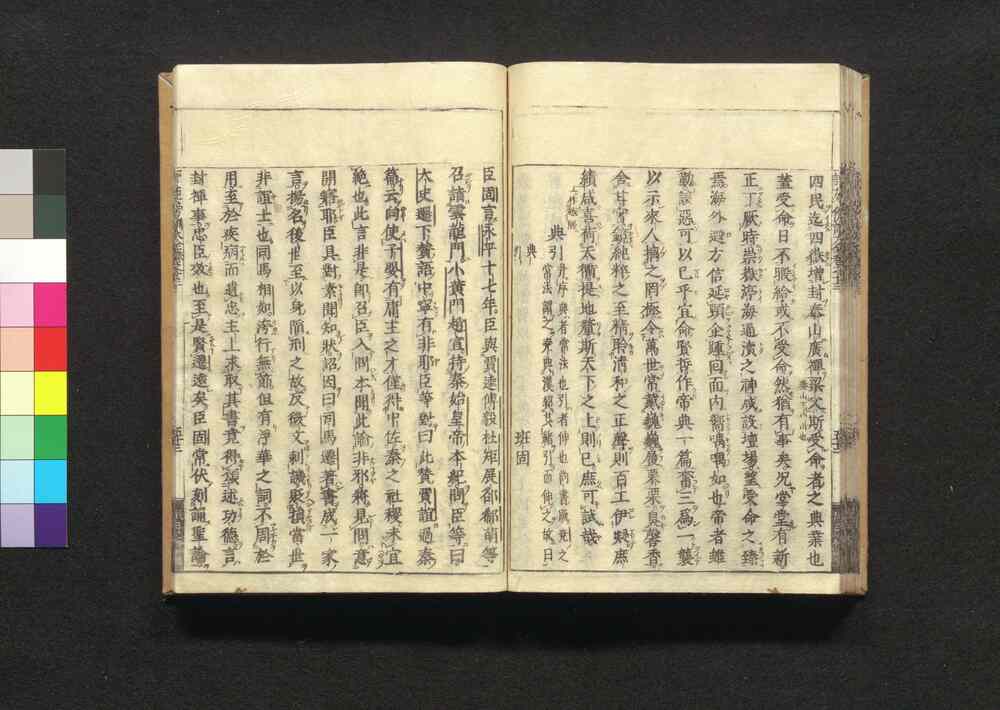 四民迄四嶽増封泰山廣禪梁父斯受命者之典業也
蓋受命日不暇給或不受命然猶有事矣况堂堂有新
正丁厥時崇嶽渟海通瀆之神咸設壇塲望受命之臻
焉海外遐方信延頸企踵回面内嚮喁喁如也帝者雖
勤讓惡可以已乎宜命賢哲作帝典一篇奮三為一襲
以示來人摛之罔極令萬世常戴巍巍履栗栗臭馨香
含甘實鏡純粹之至精聆清和之正聲則百工伊凝庶
績咸喜荷天衢提地釐斯天下之上則已庶可試哉
典引
班固
臣固言永平十七年臣與賈逵傅毅杜矩展郄郗萌等
召詣雲龍門小黄門趙宣持秦始皇帝本紀問臣等曰
大史遷下賛語中寧有非耶臣等對曰此賛賈誼過秦
篇云向使子嬰有庸主之才僅得中佐秦之社稷未宜
絶也此言非是即召臣入問本聞此論非邪將見問意
開寤耶臣具對素聞知狀詔因曰司馬遷著書成一家
言揚名後世至以身陷刑之故反微文刺譏貶損當世
非誼士也司馬相如洿行無節但有浮華之詞不周於
用至於疾病而遺忠主上求取其書竟得頌述功德言
封禪事忠臣效也至是賢遷遠矣臣固常伏刻誦聖論